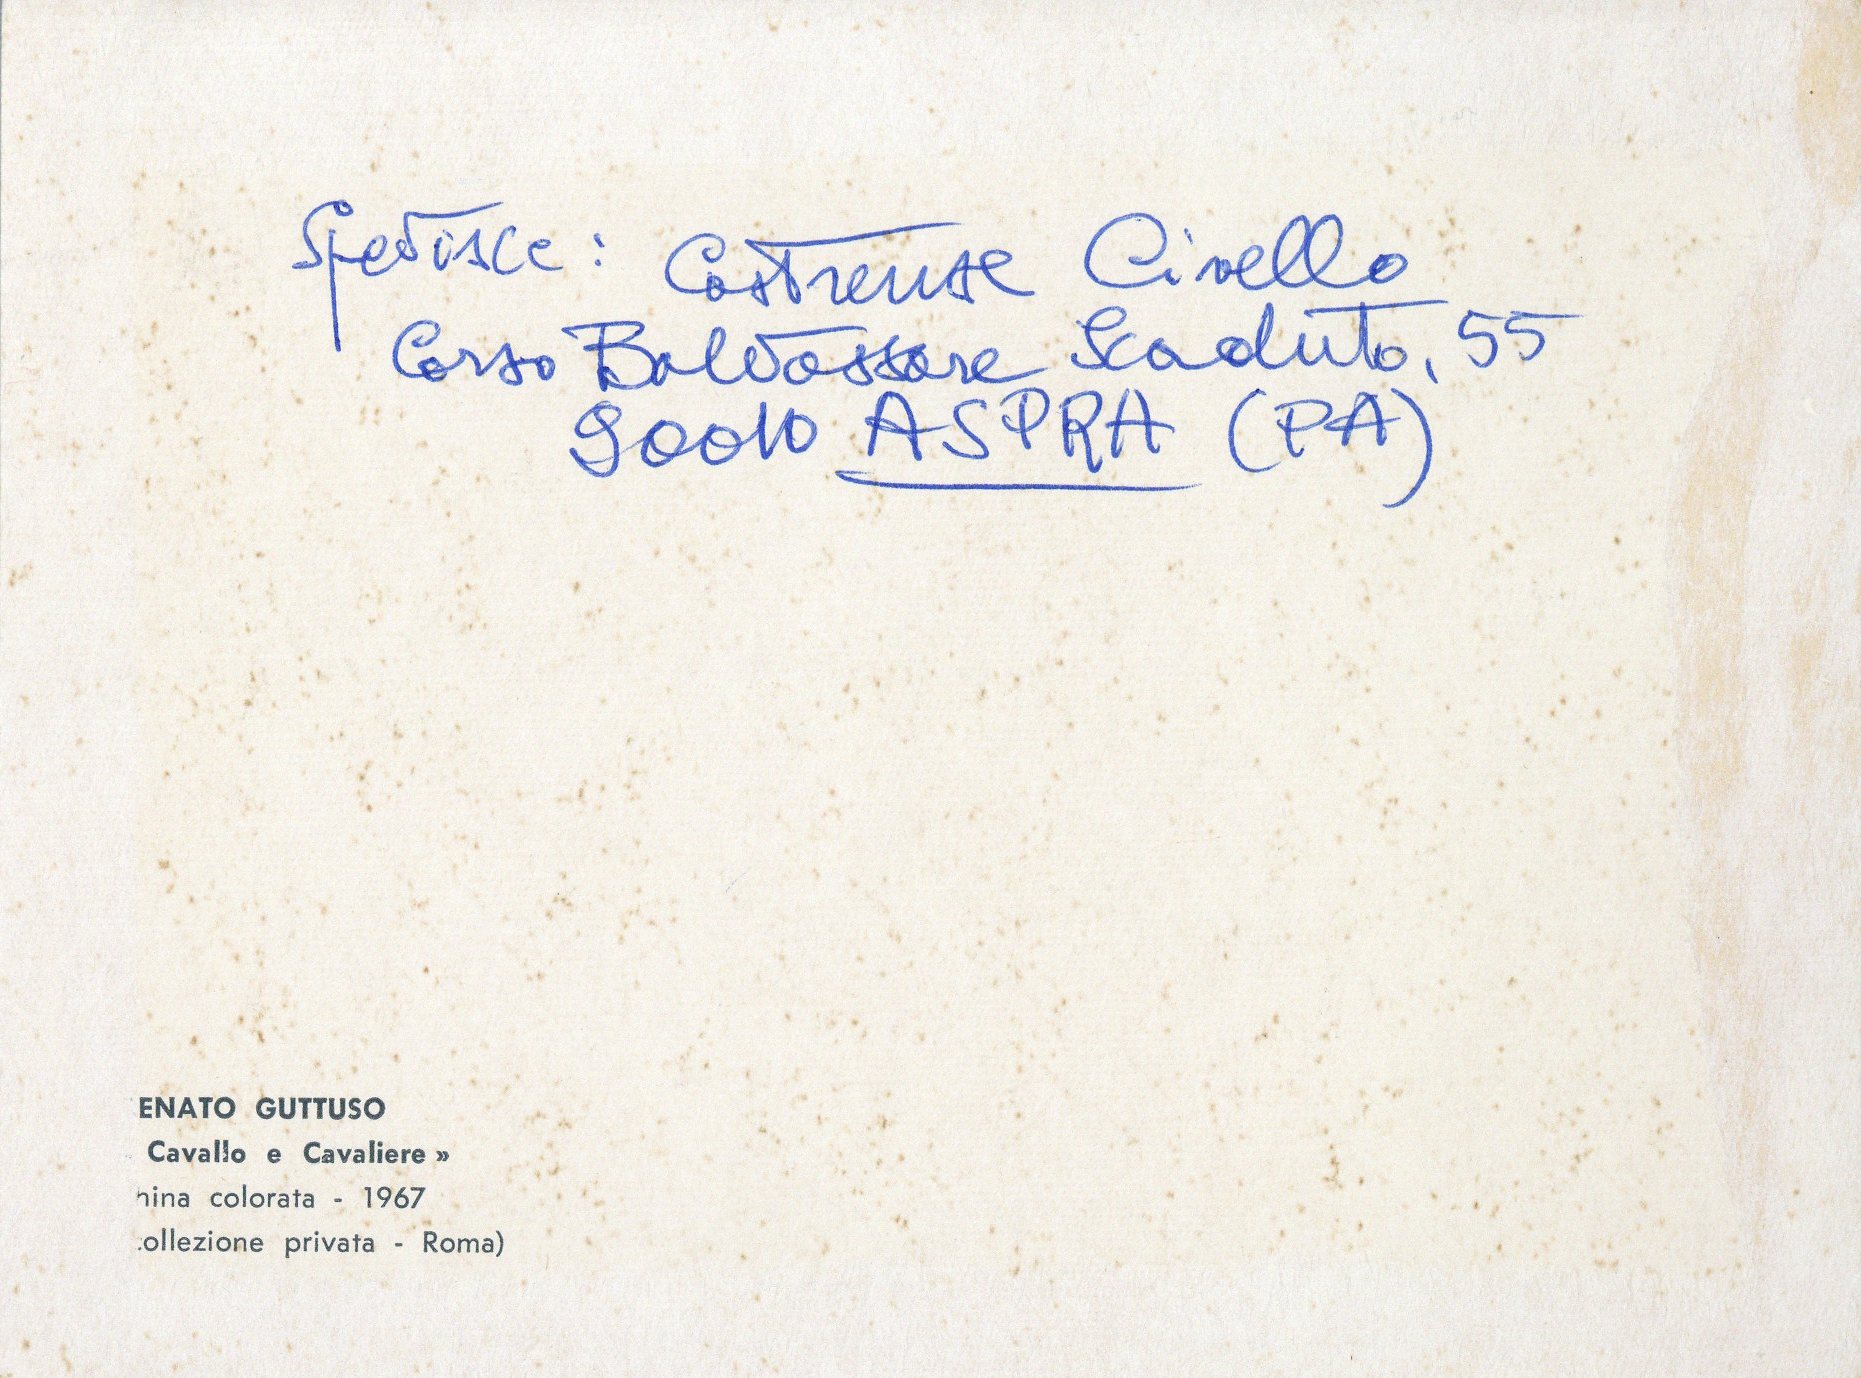 Spedisce: Castrense Civello
Corso Baldassare Scaduto, 55
90010 ASPRA (PA)
ENATO GUTTUSO
Cavallo e Cavaliere »
hina colorata - 1967
ollezione privata - Roma)